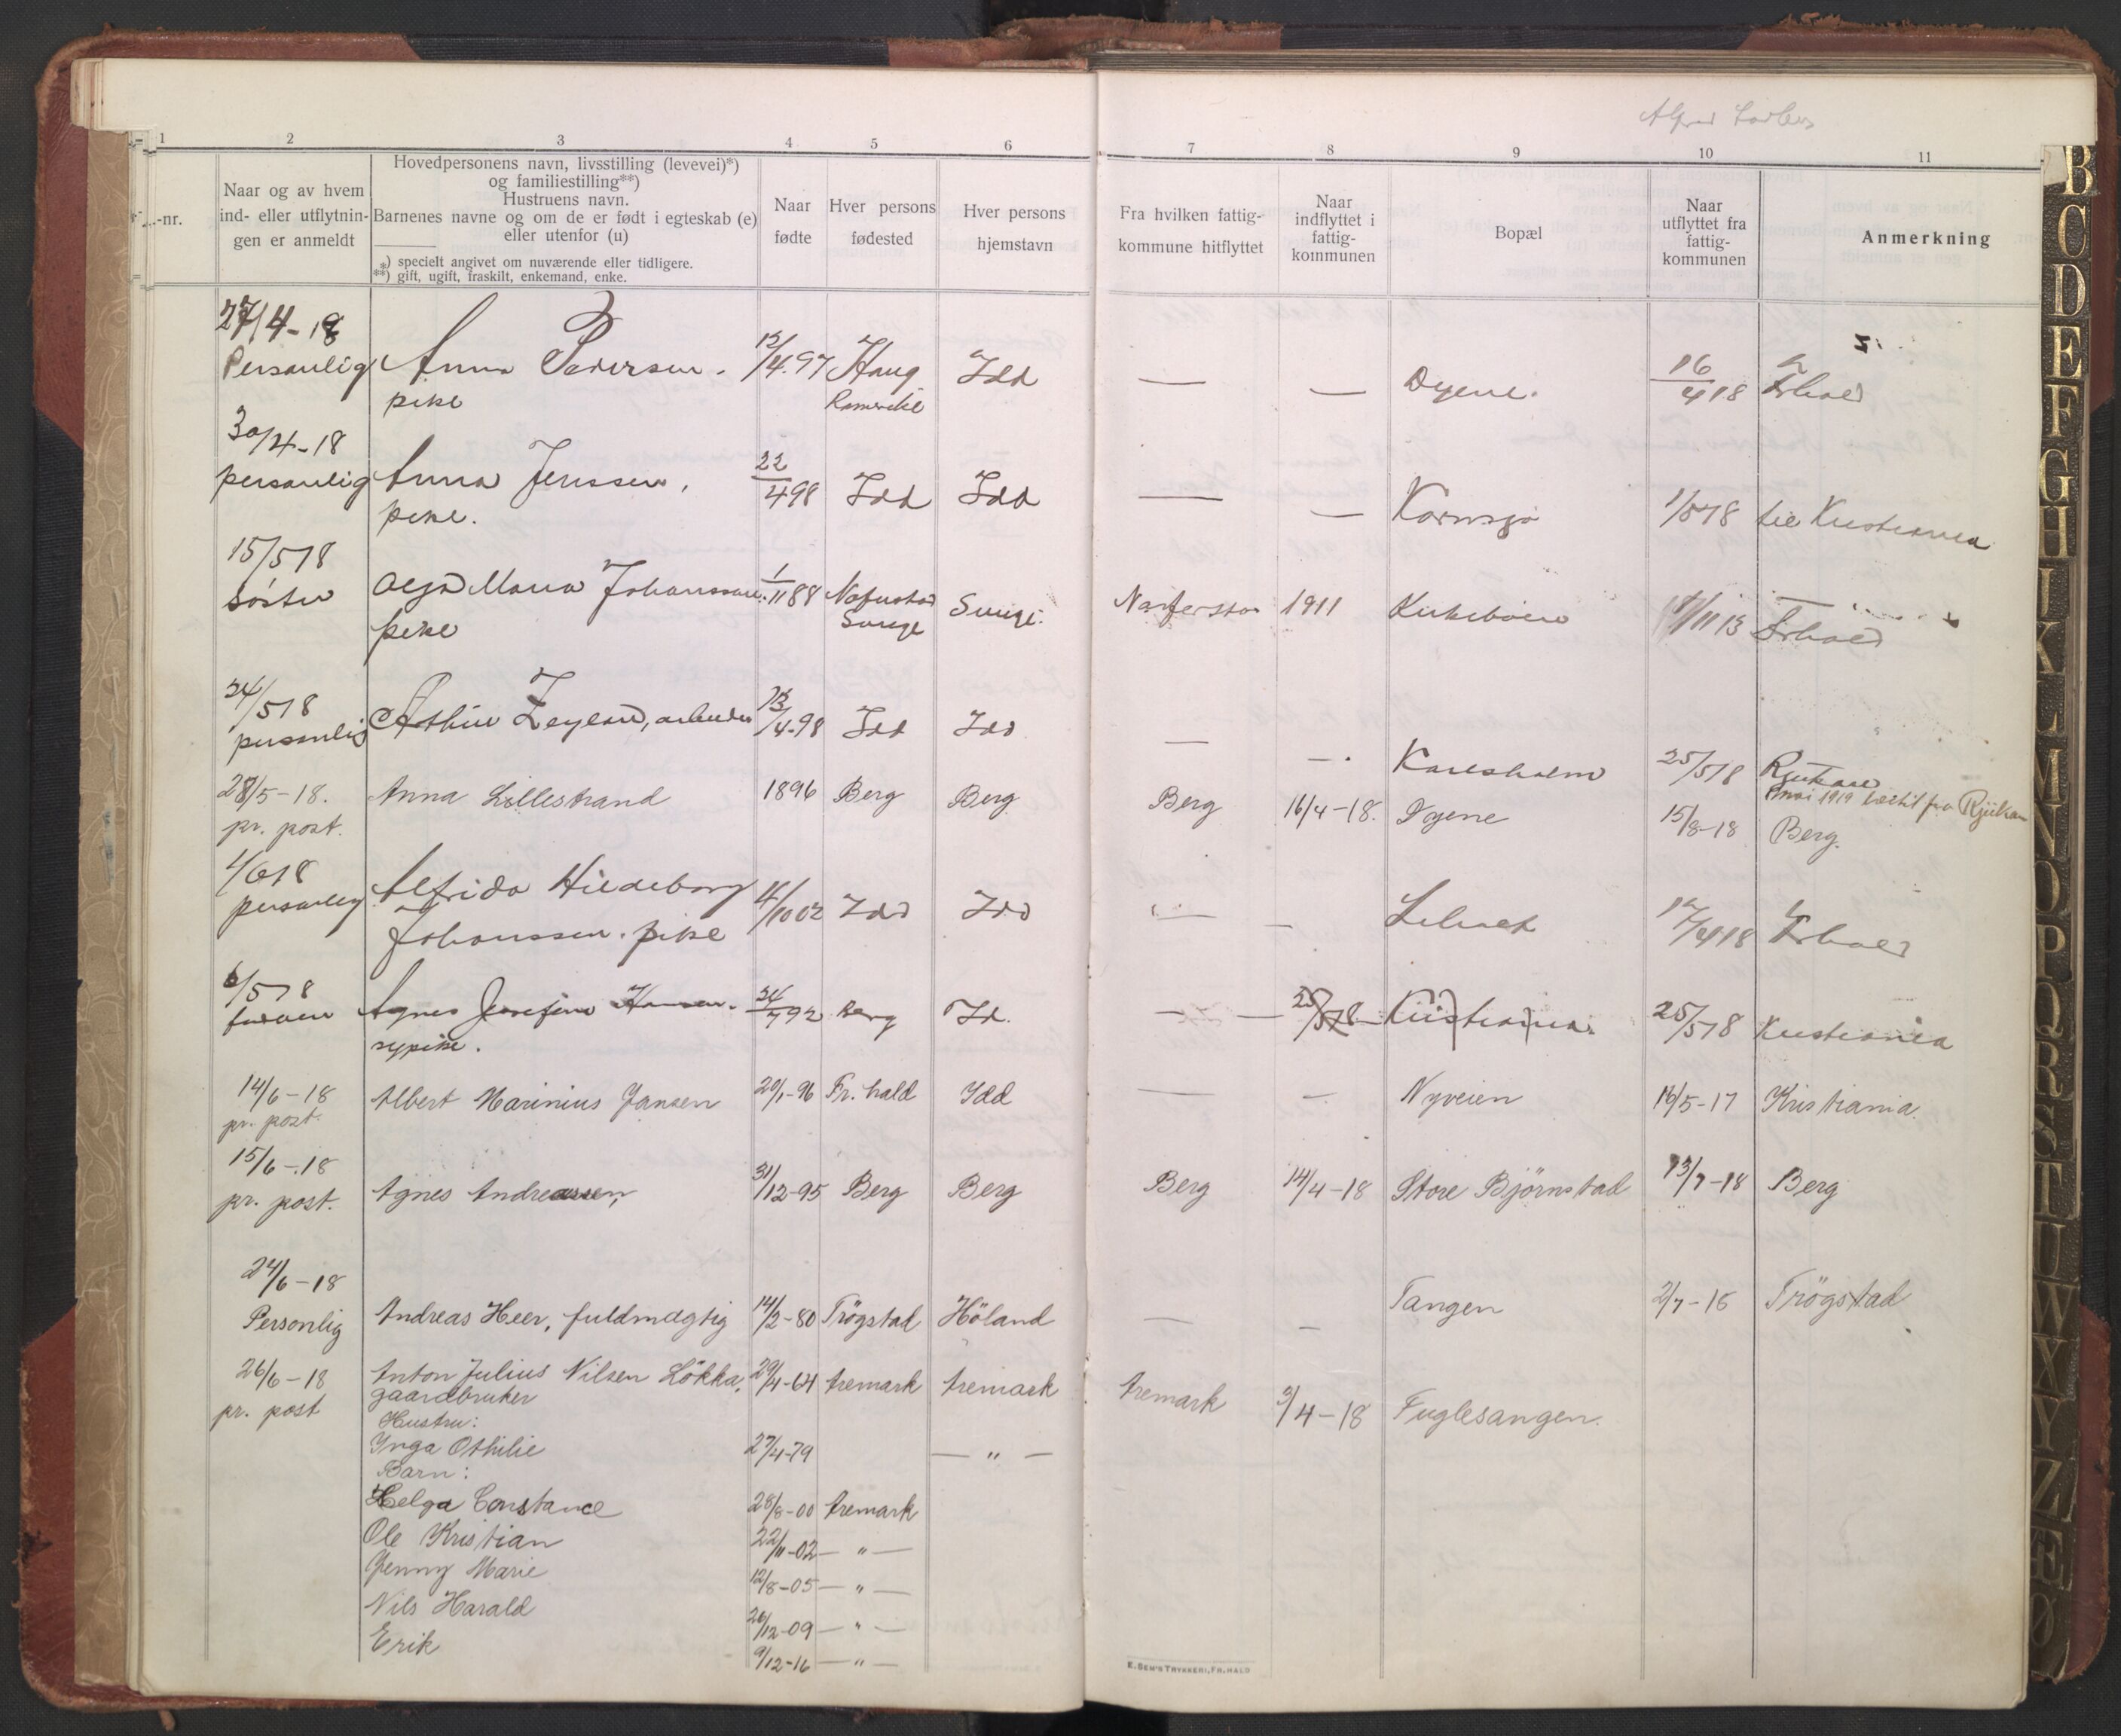 1 2 3 4 5 6 7 8 9 10 11
-nr.
Naar og av hvem
ind- eller utflytnin-
gen er anmeldt
Hovedpersonens navn, livsstilling (levevei)*)
og familiestilling**)
Hustruens navn.
Barnenes navne og om de er født i egteskab (e)
eller utenfor (u)
*) specielt angivet om nuværende eller tidligere.
**) gift, ugift, fraskilt, enkemand, enke.
Naar
fødte
Hver persons
fødested
Hver persons
hjemstavn
Fra hvilken fattig-
kommune hitflyttet
Naar
indflyttet i
fattig-
kommunen
Bopæl
Naar
utflyttet fra
fattig-
kommunen
Anmerkning
27/4-18
Personlig Anna Pedersen. 12/4.97 Haug Idd — — Dyene. 16/4 18 Frhald
pike Romerike
30/4-18
personlig Anna Jenssen, 22/4 98 Idd Idd — — Kornsjø 1/5 18 til Kristiania
pike.
15/5 18
Søster Olga Maria Johanssen. 1/11 88 Sverige. 1911 Kirkebøen Frhald
pike Sverige
24/5 18
personlig Arthur arbeider 13/4-98 Idd Idd — — Karlsholm 25/5 18 Rjukan
mai 1919 fra Rjukan
28/5-18. Anna Lillestrand 1896 Berg Berg Berg 16/4-18. Dyene 15/8-18 Berg.
pr. post.
4/6 18
personlig Alfrida Hildeborg 4/10 02 Idd Idd — — 12/4 18 Frhald
Johanssen. pike
6/5 18
Agnes Josefine Hansen. 24/7 92 Berg Id. — — 25/5 18 Kristiania. 25/5 18 Kristiania
sypike.
14/6-18 Albert Marinius Jansen 20/1-96 Fr.hald Idd — — Nyveien 16/5-17 Kristiania.
pr. post.
15/6-18
pr. post. Agnes Andreassen, 31/12-95 Berg Berg Berg 14/4-18 Store Bjørnstad 13/7-18 Berg
24/6-18
Personlig Andreas Heer, fuldmægtig 14/2-80 Trögstad Höland — — Tangen 2/7-18 Trögstad
26/6-18 Anton Julius Nilsen Lökka, 29/4-64 Aremark Aremark Aremark 3/4-18 Fuglesangen.
pr. post gaardbruker
Hustru:
Inga Othilie 27/4-79 — " —
Barn:
Helga Constance 28/8-00 Aremark
Ole Kristian 22/11-02 — " —
Jenny Marie 12/8-05 — " —
Nils Harald 26/12-09 — " —
Erik 9/12-16 — " —
E. Sem's Trykkeri, Fr.hald
B
C
D
E
F
G
H
I
K
L
M
N
O
P
Q
R
S
T
U
W
X
Y
Z
Æ
Ø